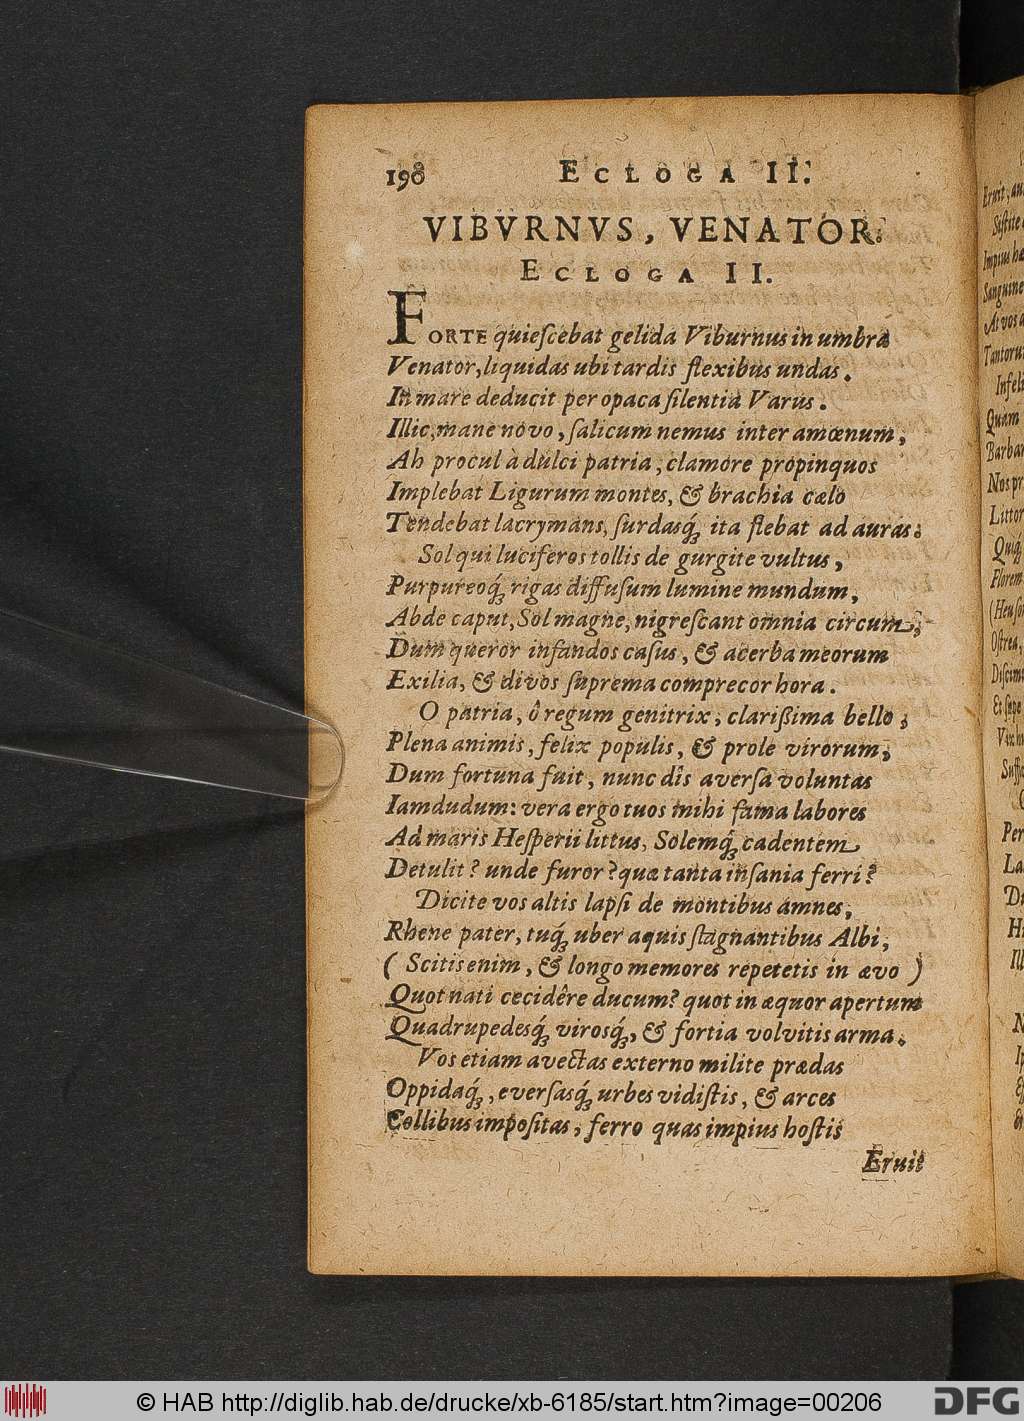 198 ECLOGA II.
VIBVRNVS, VENATOR.
ECLOGA II.
FORTE quieſcebat gelida Viburnus in umbra
Venator, liquidas ubi tardis flexibus undas.
In mare deducit per opaca ſilentia Varus.
Illic, mane novo, ſalicum nemus inter amœnum,
Ah procul à dulci patria, clamore propinquos
Implebat Ligurum montes, & brachia cælo
Tendebat lacrymans, ſurdasq́; ita flebat ad auras.
Sol qui luciferos tollis de gurgite vultus,
Purpureoq́; rigas diffuſum lumine mundum,
Abde caput, Sol magne, nigreſcant omnia circum,
Dum queror infandos caſus, & acerba meorum
Exilia, & divos ſuprema comprecor hora.
O patria, ô regum genitrix, clarißima bello,
Plena animis, felix populis, & prole virorum,
Dum fortuna fuit, nunc dîs averſa voluntas
Iamdudum: vera ergo tuos mihi fama labores
Ad maris Heſperii littus, Solemq́; cadentem
Detulit? unde furor? quæ tanta inſania ferri?
Dicite vos altis lapſi de montibus amnes,
Rhene pater, tuq́; uber aquis ſtagnantibus Albi,
( Scitis enim, & longo memores repetetis in ævo )
Quot nati cecidêre ducum? quot in æquor apertum
Quadrupedesq́; virosq́;, & fortia volvitis arma.
Vos etiam avectas externo milite prædas
Oppidaq́;, everſasq́; urbes vidiſtis, & arces
Collibus impoſitas, ferro quas impius hoſtis
Eruit
© HAB http://diglib.hab.de/drucke/xb-6185/start.htm?image=00206
DFG